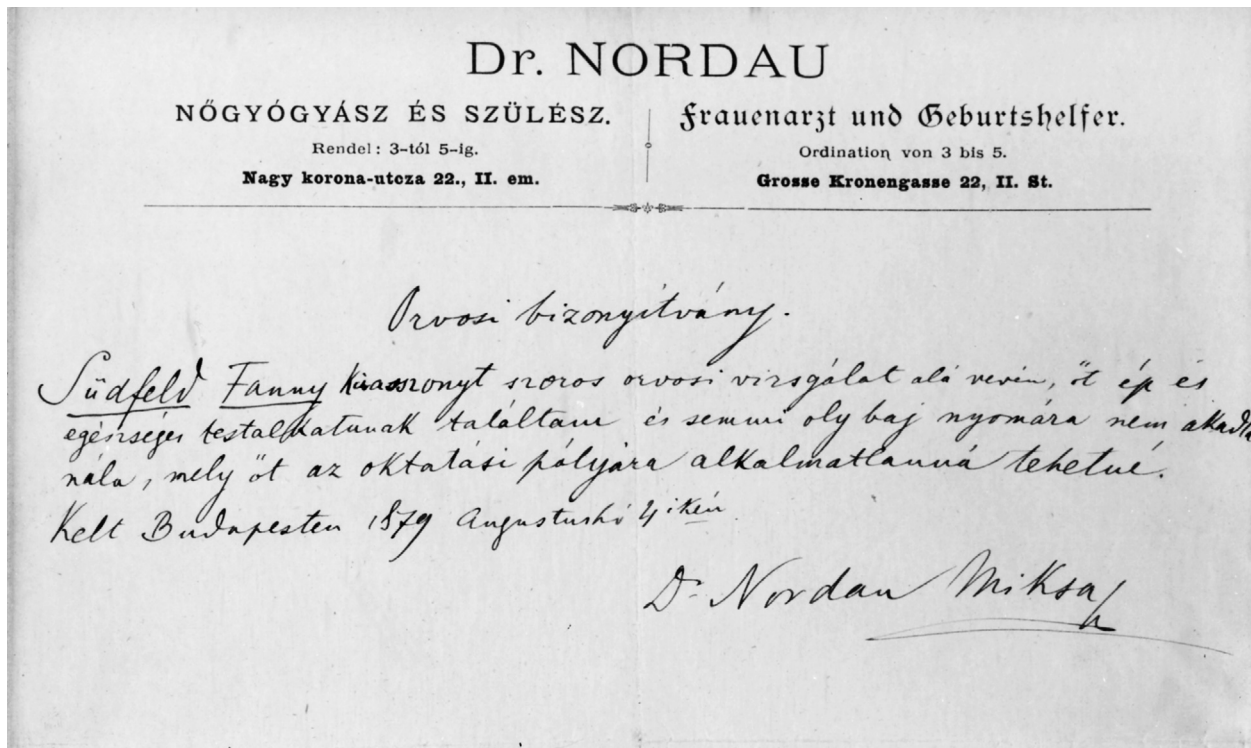 Dr. NORDAU
NŐGYÓGYÁSZ ÉS SZÜLÉSZ.
Rendel: 3-tól 5-ig.
Nagy korona-utcza 22., II. em.
Frauenarzt und Geburtshelfer.
Ordination von 3 bis 5.
Grosse Kronengasse 22, II. St.
Orvosi bizonyítvány.
Südfeld Fanny kisasszonyt szoros orvosi vizsgálat alá vevén, őt ép és
egészséges testalkatunak találtam és semmi oly baj nyomára nem akadta
nála, mely őt az oktatási pályára alkalmatlanná tehetné.
Kelt Budapesten 1879 Augustushó 4ikén
Dr Nordau Miksa